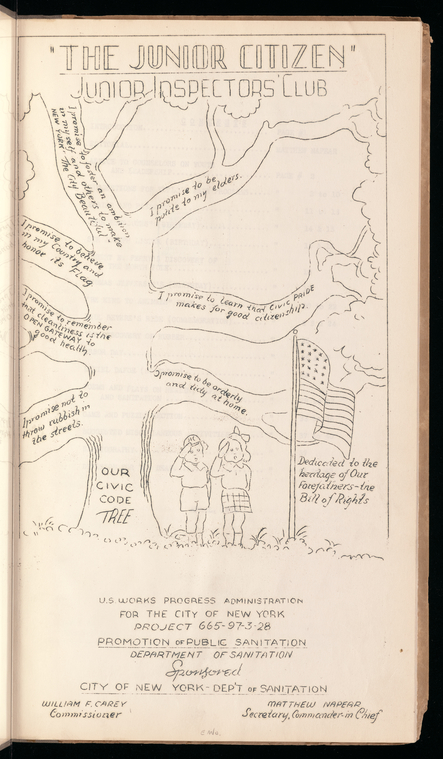 "THE JUNIOR CITIZEN"
JUNIOR INSPECTORS' CLUB
I promise
to foster an ambition
in myself and others to make
NEW YORK "The City Beautiful"
I promise to be
polite to my elders.
I promise to believe
in my Country and
honor its Flag
I promise to learn that CIVIC PRIDE
makes for good citizenship.
I promise to remember
that cleanliness is the
OPEN GATEWAY to
good health
I promise to be orderly
and tidy at home.
I promise not to
throw rubbish in
the streets.
OUR
CIVIC
CODE
TREE
Dedicated to the
heritage of Our
Forefathers-the
Bill of Rights
U.S. WORKS PROGRESS ADMINISTRATION
FOR THE CITY OF NEW YORK
PROJECT 665-97-3-28
PROMOTION OF PUBLIC SANITATION
DEPARTMENT OF SANITATION
Sponsored
CITY OF NEW YORK-DEP'T OF SANITATION
WILLIAM F. CAREY
Commissioner
MATTHEW NAPEAR
Secretary, Commander-in Chief